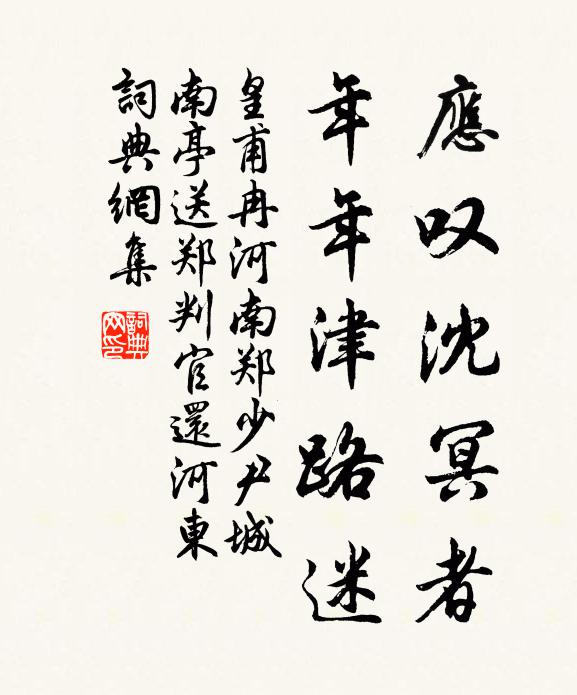 應叹沈冥者
年年津路迷
皇甫冉河南郑少尹城
南亭送郑判官還河東
詞典網集
詞典网印